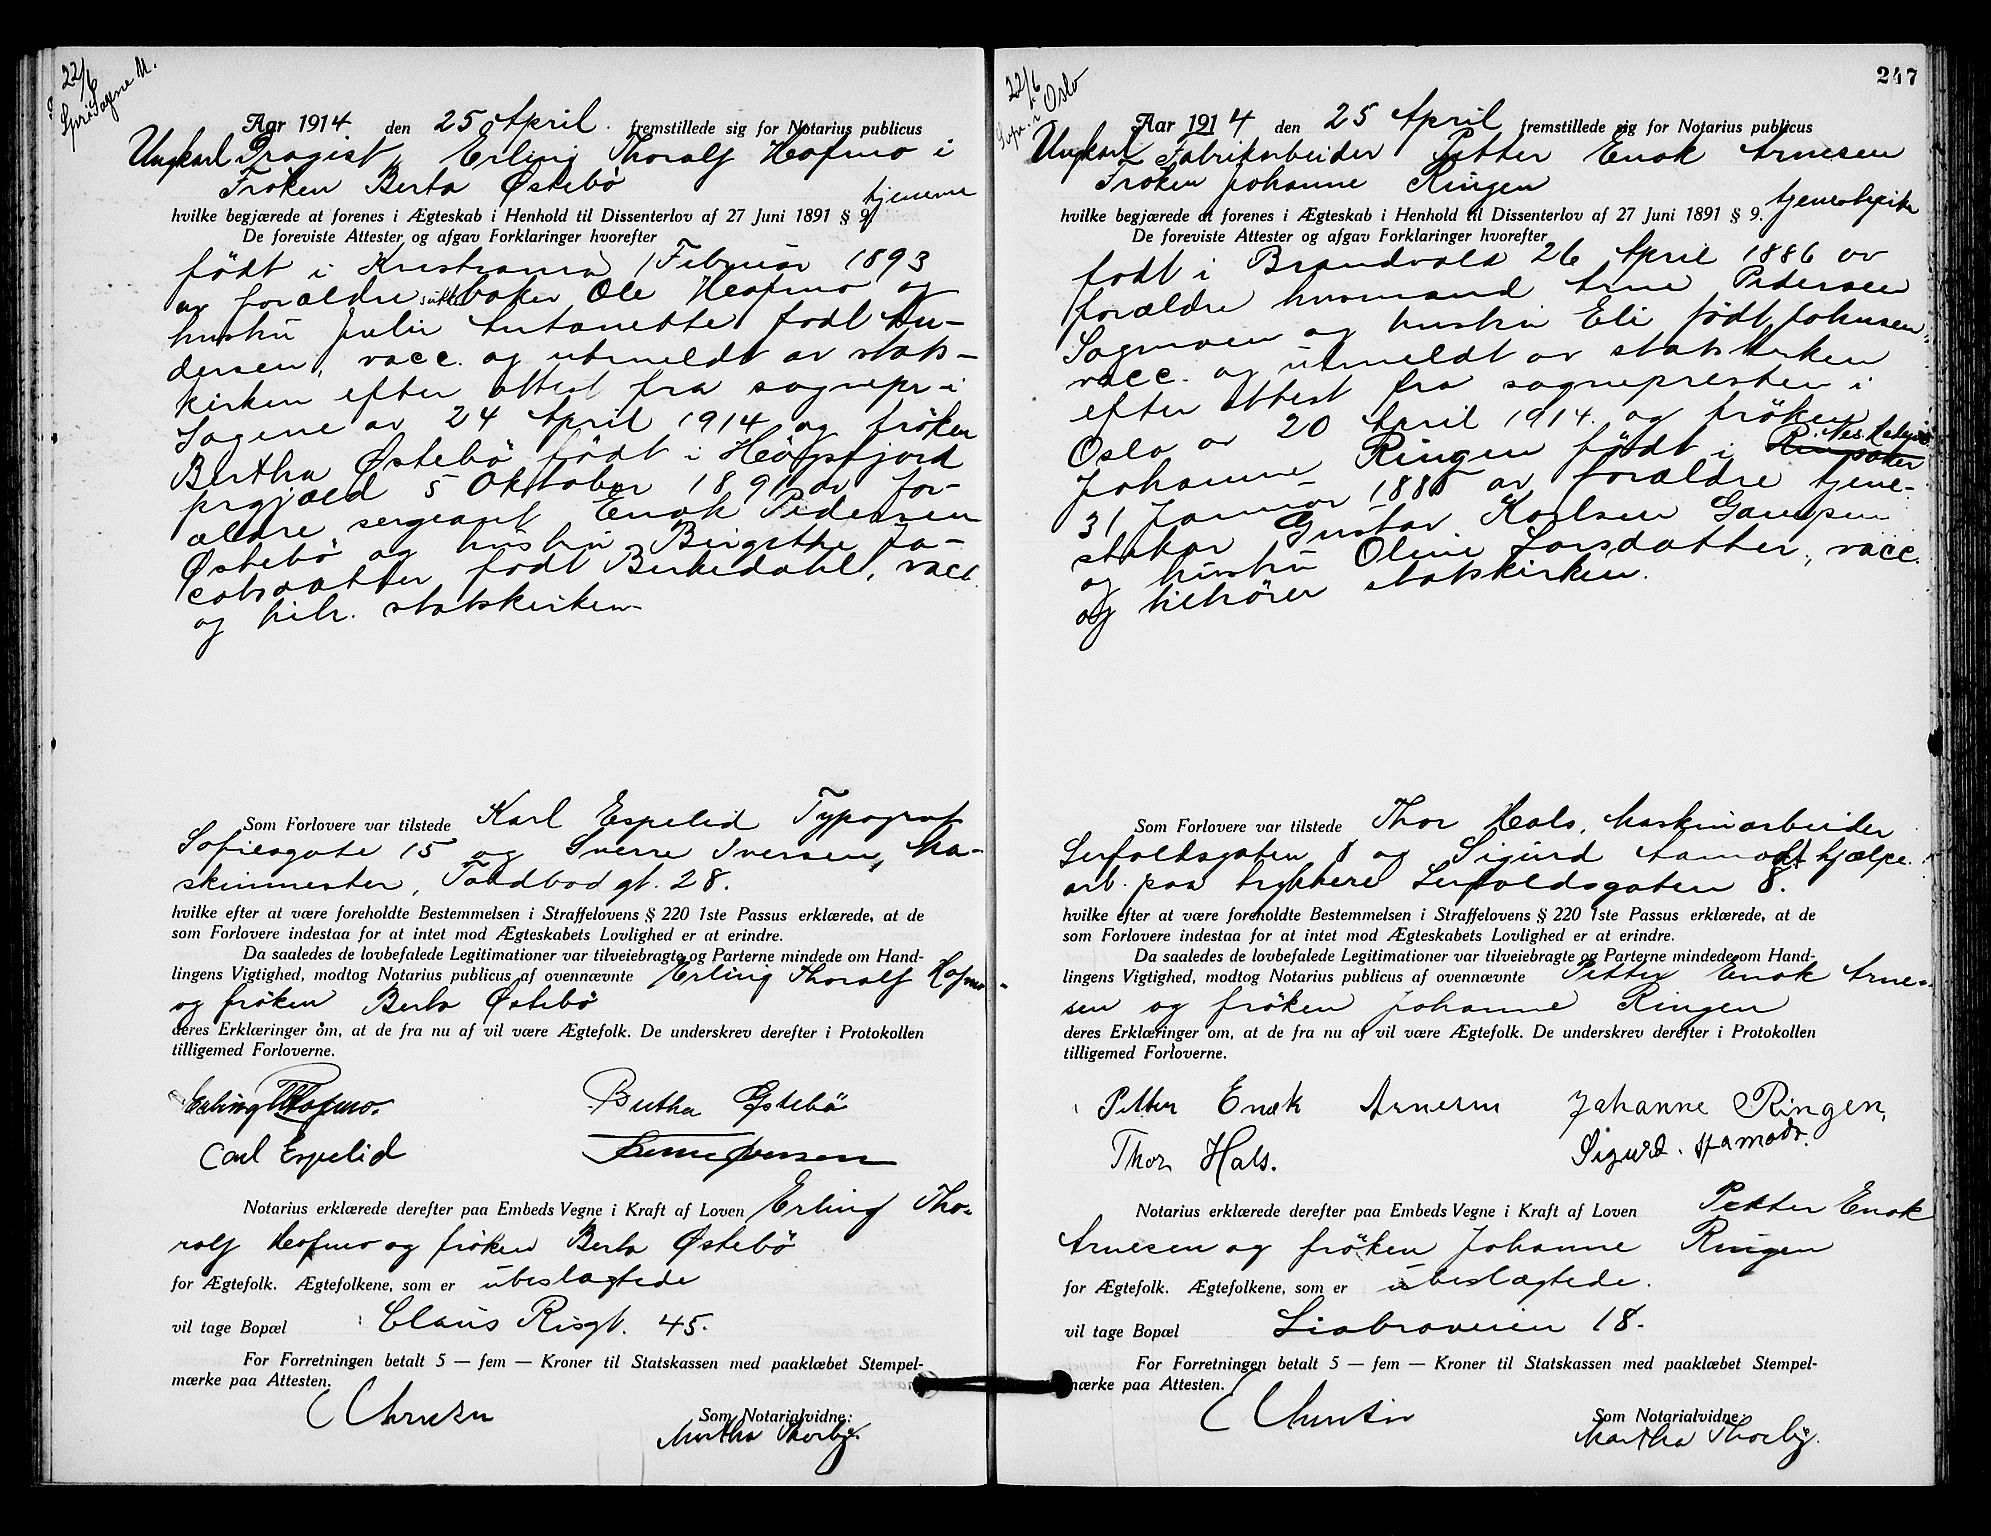 22/6
Aar 1914 den 25 April fremstillede sig for Notarius publicus
Ungkarl Drogist Erling Thoralf Hofmo i
Frøken Berta Østebö
tjenerne
hvilke begjærede at forenes i Ægteskab i Henhold til Dissenterlov af 27 Juni 1891 § 9
De foreviste Attester og afgav Forklaringer hvorefter
født i Kristiania 1 Februar 1893
av forældre baker Ole Hofmo og
hustru Julie Antonette født An-
dersen, vacc. og utmeldt av stats-
kirken efter attest fra sognepr. i
Sagene av 24 April 1914 og frøken
Bertha Østebö født i Högsfjord
prgjæld 5 Oktober 1891 av for-
ældre sergeant Enok Pedersen
Østebö og hustru Birgithe Ja-
cobsdatter født Birkedahl, vacc.
og tilh. statskirken.
Som Forlovere var tilstede Karl Espelid Typograf
Sofiesgate 15 og Sverre Iversen, Ma-
skinmester, Toldbod gt. 28.
hvilke efter at være foreholdte Bestemmelsen i Straffelovens § 220 1ste Passus erklærede, at de
som Forlovere indestaa for at intet mod Ægteskabets Lovlighed er at erindre.
Da saaledes de lovbefalede Legitimationer var tilveiebragte og Parterne mindede om Hand-
lingens Vigtighed, modtog Notarius publicus af ovennævnte Erling Thoralf Hofmo
og frøken Berta Østebö
deres Erklæringer om, at de fra nu af vil være Ægtefolk. De underskrev derefter i Protokollen
tilligemed Forloverne.
Erling Th Hofmo. Bertha Østebö
Carl Espelid Sverre Iversen
Notarius erklærede derefter paa Embeds Vegne i Kraft af Loven Erling Tho-
ralf Hofmo og frøken Berta Østebö
for Ægtefolk. Ægtefolkene, som er ubeslægtede
vil tage Bopæl Claus Risgt. 45.
For Forretningen betalt 5 — fem — Kroner til Statskassen med paaklæbet Stempel-
mærke paa Attesten.
Som Notarialvidne:
Martha Thorbj.
247
22/6
Oslo
Aar 1914 den 25 April fremstillede sig for Notarius publicus
Ungkarl Fabrikarbeider Petter Enok Arnesen
Frøken Johanne Ringen
hvilke begjærede at forenes i Ægteskab i Henhold til Dissenterlov af 27 Juni 1891 § 9.
De foreviste Attester og afgav Forklaringer hvorefter
født i Brandvold 26 April 1886 av
forældre husmand Arne Pedersen
Sagmoen og hustru Eli født Johnsen,
vacc. og utmeldt av statskirken
efter attest fra sognepresten i
Oslo av 20 April 1914. og frøken
Johanne Ringen født i Ringsaker Nes. Hedm.
31 Januar 1888 av forældre tjene-
stekar Gustav Karlsen Gaupen
og hustru Oline Larsdatter, vacc.
og tilhører statskirken.
Som Forlovere var tilstede Thor Hals, Maskinarbeider
og Sigurd Aamodt hjælpe-
arb. paa trykkeri 8.
hvilke efter at være foreholdte Bestemmelsen i Straffelovens § 220 1ste Passus erklærede, at de
som Forlovere indestaa for at intet mod Ægteskabets Lovlighed er at erindre.
Da saaledes de lovbefalede Legitimationer var tilveiebragte og Parterne mindede om Hand-
lingens Vigtighed, modtog Notarius publicus af ovennævnte Petter Enok Arne-
sen og frøken Johanne Ringen
deres Erklæringer om, at de fra nu af vil være Ægtefolk. De underskrev derefter i Protokollen
tilligemed Forloverne.
Petter Enok Arnesen Johanne Ringen,
Thor Hals. Sigurd. Aamodt.
Notarius erklærede derefter paa Embeds Vegne i Kraft af Loven Petter Enok
Arnesen og frøken Johanne Ringen
for Ægtefolk. Ægtefolkene, som er ubeslægtede.
vil tage Bopæl Liabroveien 18.
For Forretningen betalt 5 — fem — Kroner til Statskassen med paaklæbet Stempel-
mærke paa Attesten.
Som Notarialvidne:
Martha Thorbj.